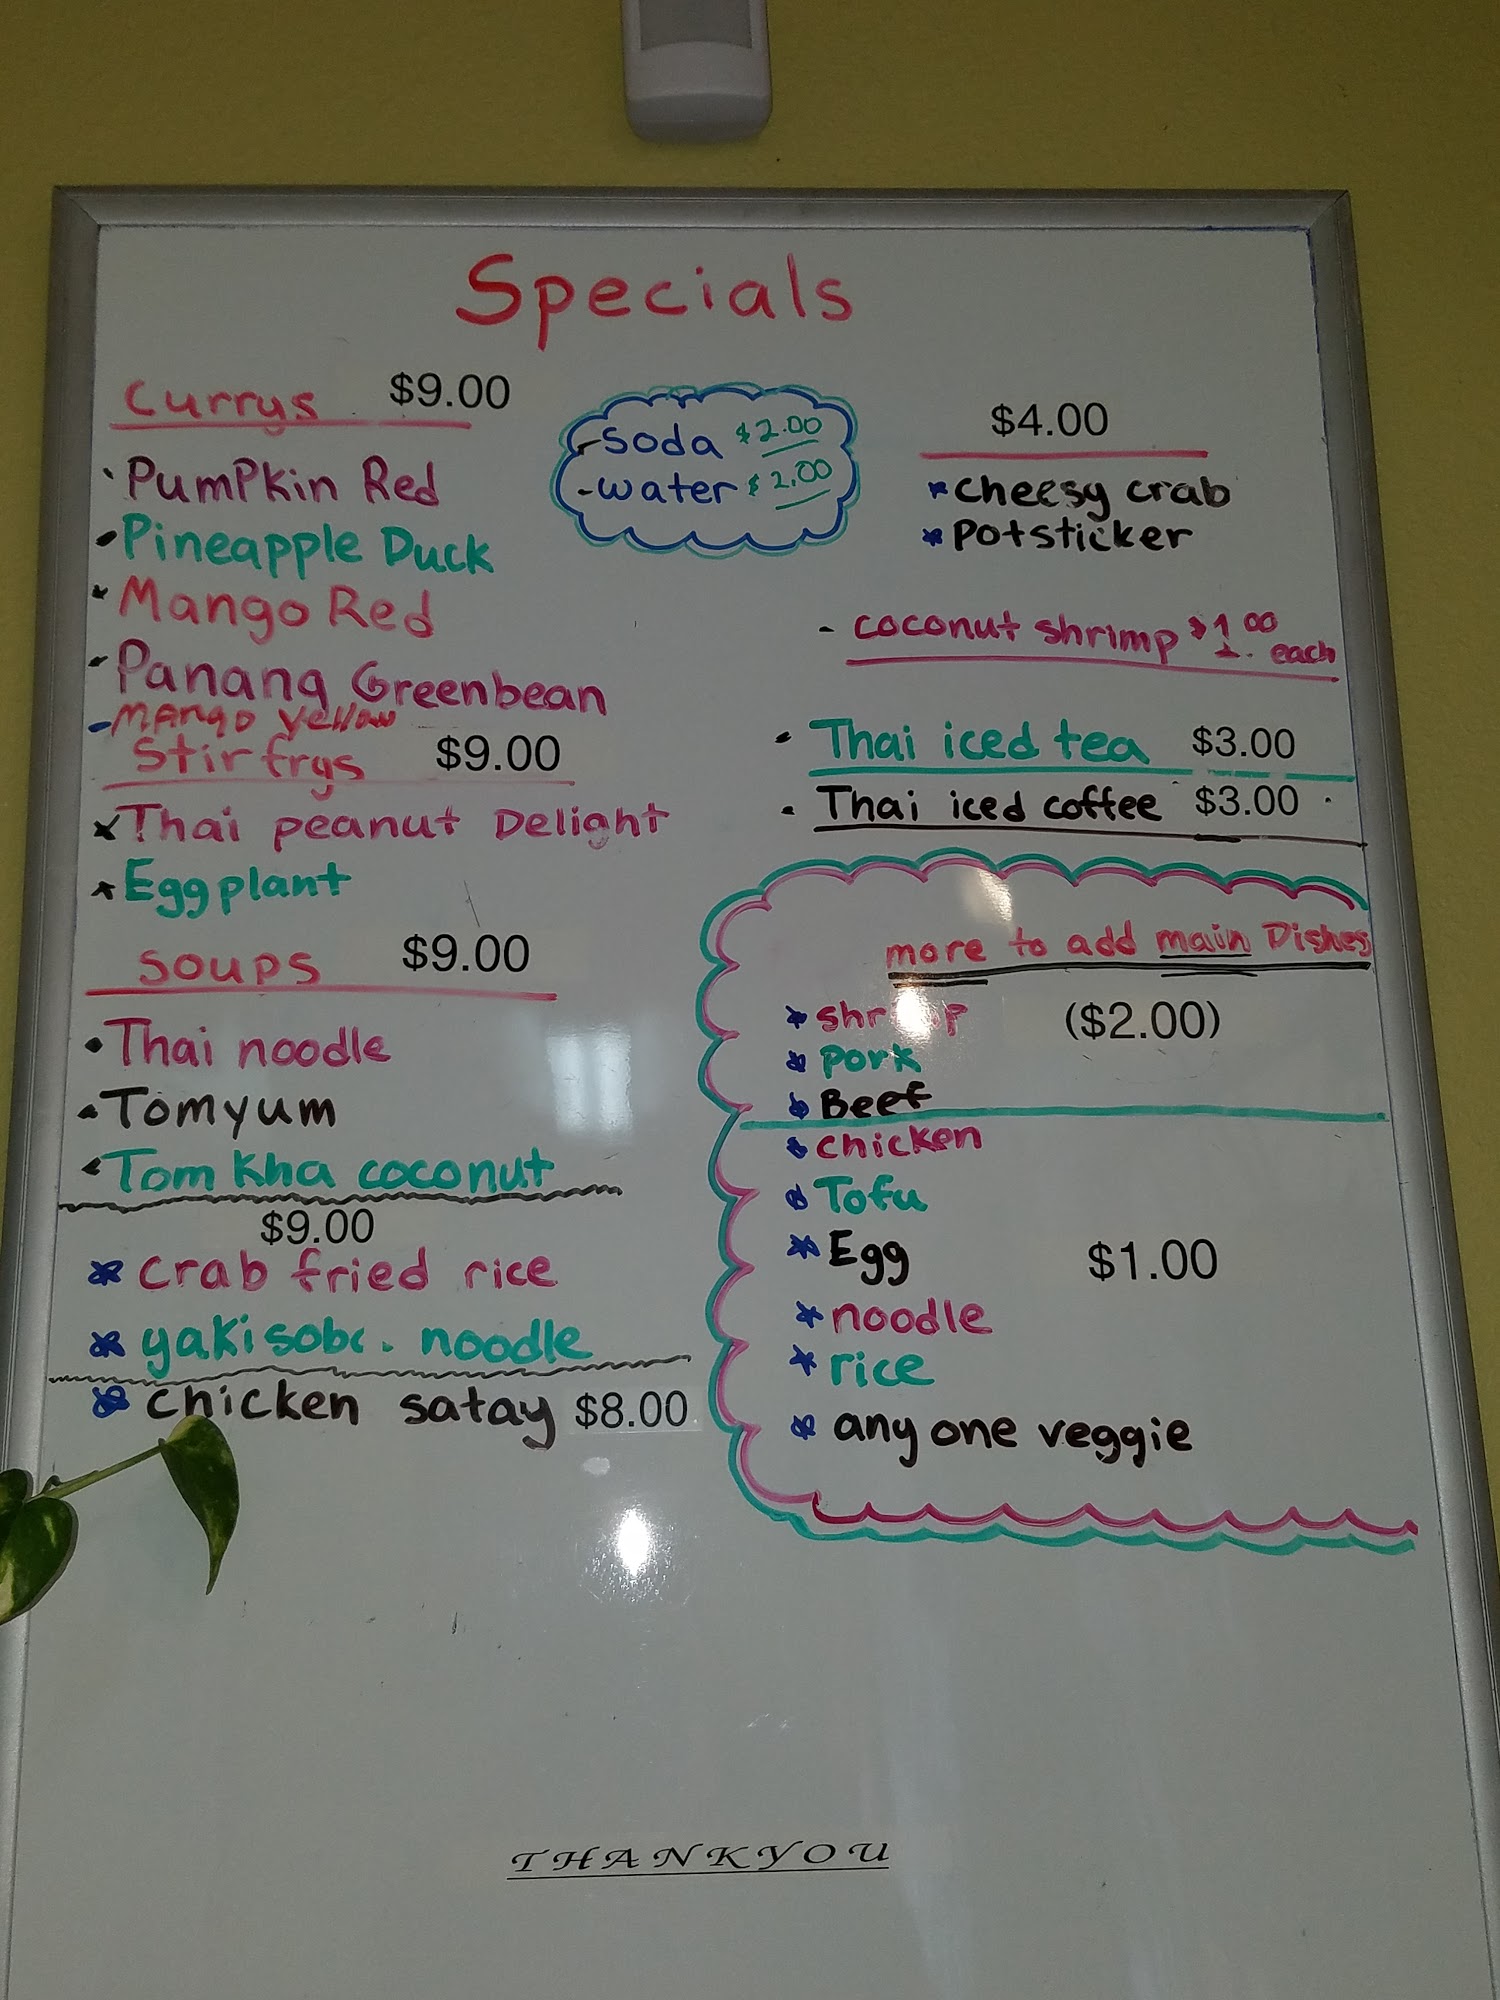 Specials
Currys $9.00
PumPkin Red
Pineapple Duck
Mango Red
Panang Greenbean
-MANgo yellow
Stir frys $9.00
Thai peanut Delight
Eggplant
Soups $9.00
Thai noodle
Tomyum
Tom Kha coconut
$9.00
crab fried rice
yakisoba noodle
chicken satay $8.00
-soda $2.00
-water $2.00
$4.00
cheesy crab
Potsticker
- coconut shrimp $1.00 each
Thai iced tea $3.00
Thai iced coffee $3.00
more to add main Dishes
shrimp ($2.00)
Pork
Beef
chicken
Tofu
Egg $1.00
noodle
rice
any one veggie
THANKYOU